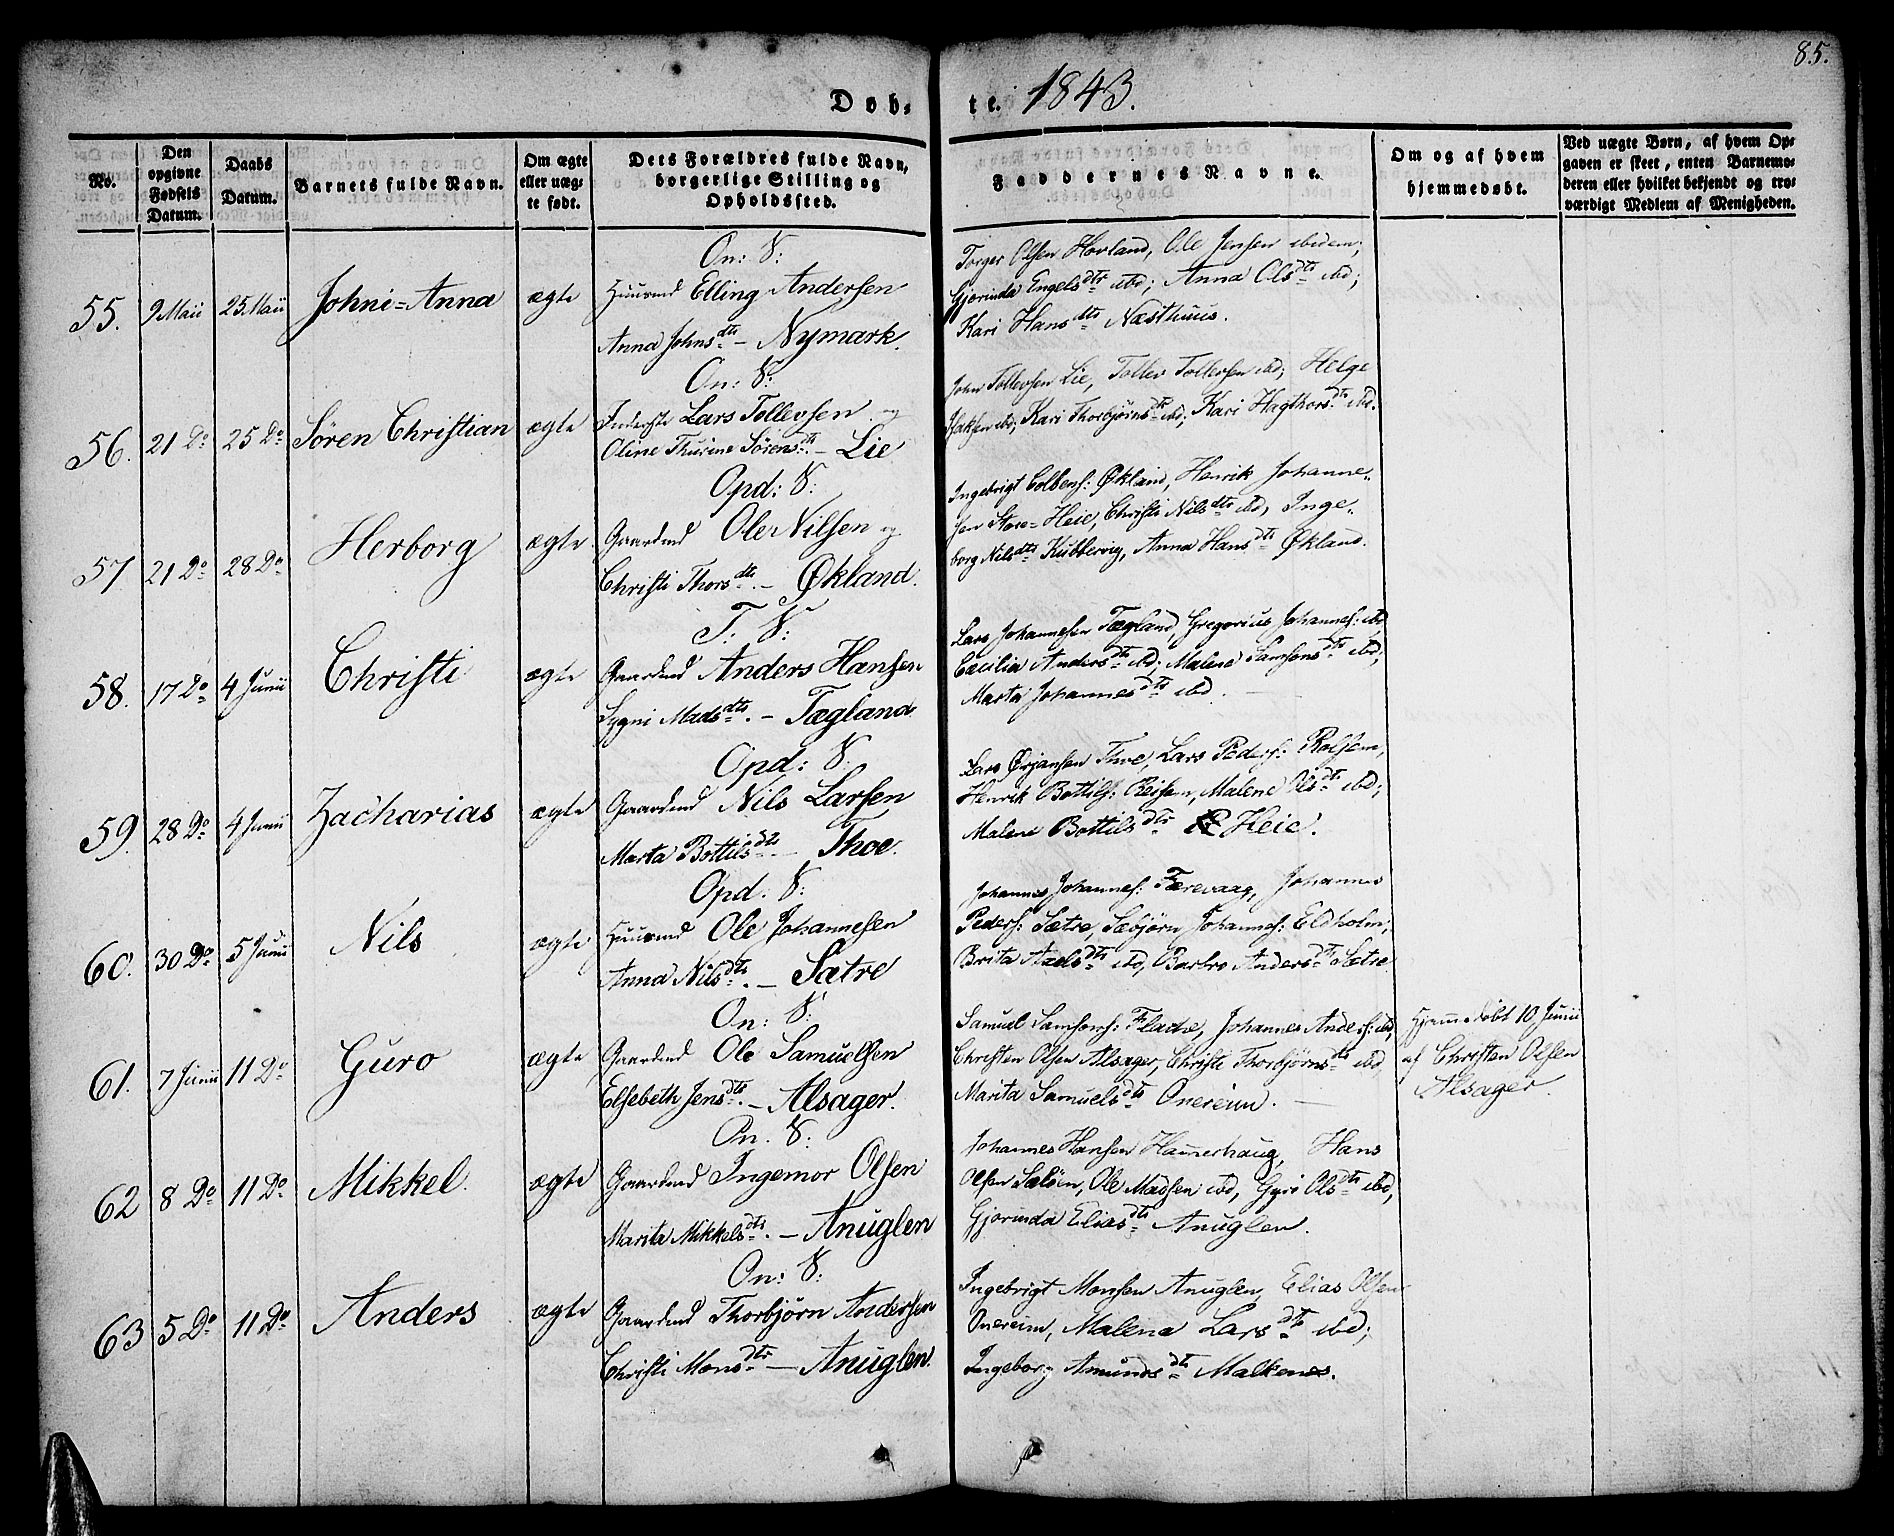 85.
Døb-
te. 1843.
No.
Den opgivne Fødsels Datum.
Daabs Datum.
Barnets fulde Navn.
Om ægte eller uægte født.
Dets Forældres fulde Navn, borgerlige Stilling og Opholdssted.
Faddernes Navne.
Om og af hvem hjemmedøbt.
Ved uægte Børn, af hvem Opgaven er skeet, enten Barnemoderen eller hvilket bekjendt og troværdigt Medlem af Menigheden.
55. 9 Maii 25 Maii Johni=Anna ægte
On: S:
Huusmd Elling Andersen
Anna Johnsdtr. - Nymark.
Torger Olsen Hovland, Ole Jensen ibidem;
Gjorinda Engelsdtr ibd; Anna Olsdtr ibd;
Kari Hansdtr Næsthuus.
56. 21 Do 25 Do Sören Christian ægte
On: S:
Inderste Lars Tollevsen og
Oline Thurine Sörensdtr. - Lie
John Tollevsen Lie, Tollev Tollevsen ibd; Helge
Isaksen ibd; Kari Thorbjørnsdtr ibd; Kari Hagthorsdtr ibd.
57 21 Do 28 Do Herborg ægte
Opd: S:
Gaardmd Ole Nilsen og
Christi Thorsdtr. - Økland.
Ingebrigt Colbens: Økland, Henrik Johanne-
sen Store=Heie, Christi Nilsdtr ibd, Inge-
borg Nilsdtr Kubbervig, Anna Hansdtr Økland.
58. 17 Do 4 Junii Christi ægte
T: S:
Gaardmd Anders Hansen
Sygni Madsdtr. - Tægland
Lars Johannesen Tægland, Gregorius Johannes: ibd
Cæcilia Andersdtr ibd; Malene Samsonsdtr ibd;
Marta Johannesdtr ibd.
59. 28 Do 4 Junii Zacharias ægte
Opd: S:
Gaardmd Nils Larsen
Marta Bottilsdtr. - Thoe.
Lars Ørjansen Thoe, Lars Peders:
Henrik Bottils: Malene Olsdtr ibd;
Malene Bottilsdtr Heie.
60. 30 Do 5 Junii Nils ægte
Opd: S:
Huusmd Ole Johannesen
Anna Nilsdtr. - Sætre
Johannes Johannes: Færevaag, Johannes
Peders: Sætre, Sæbjørn Johannes: Eldholm,
Brita Axelsdtr ibd, Barbro Andersdtr Sætre
61. 7 Junii 11 Do Guro ægte
On: S:
Gaardmd Ole Samuelsen
Elsebeth Jensdtr. - Alsager.
Samuel Samsons: Johannes Anders: ibd,
Christen Olsen Alsager, Christi Thorbjørnsdtr ibd,
Marita Samuelsdtr Onereim.
Hjemmedøbt 10 Junii
af Christen Olsen
Alsager.
62 8 Do 11 Do Mikkel. ægte
On. S:
Gaardmd Ingemor Olsen
Marita Mikkelsdtr. - Anuglen
Johannes Hansen Hamerhaug, Hans
Olsen Sæløen, Ole Madsen ibd, Gyri Olsdtr ibd,
Gjorinda Eliasdtr Anuglen.
63 5 Do 11 Do Anders ægte
On: S:
Gaardmd Thorbjörn Andersen
Christi Monsdtr - Anuglen.
Ingebrigt Monsen Anuglen, Elias Olsen
Onereim, Malena Larsdtr ibd;
Ingeborg Amundsdtr Malkenes.